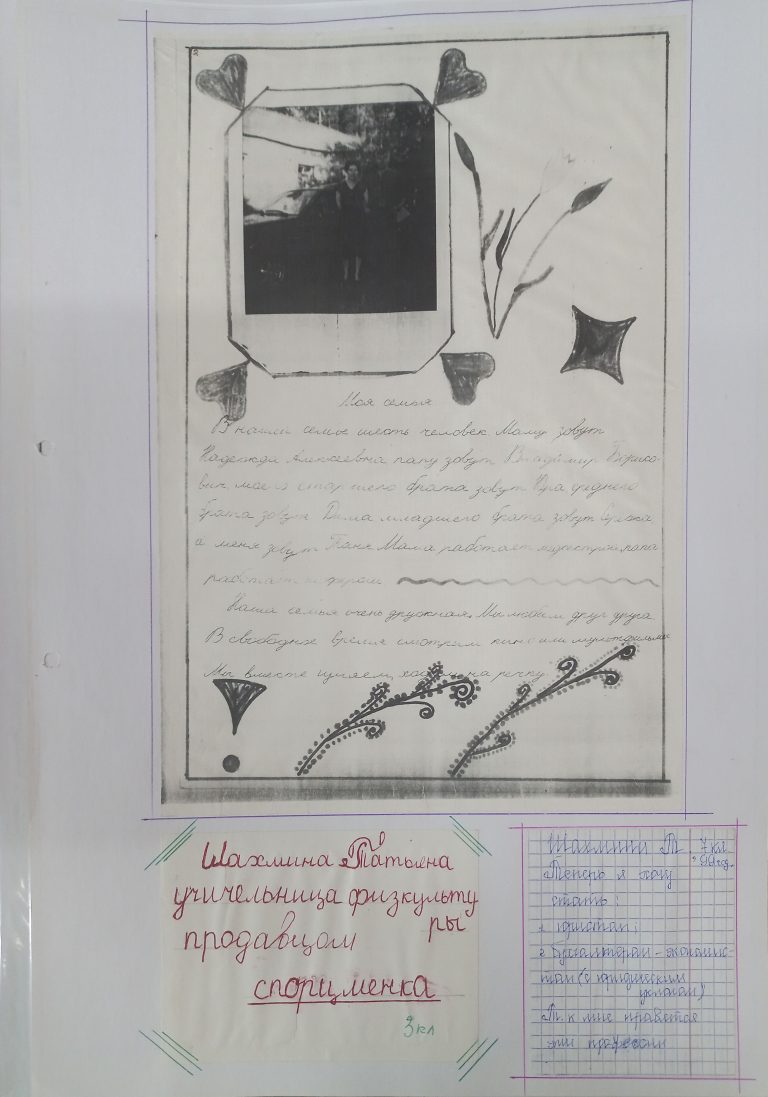 Моя семья
В наши семье шесть человек Маму зовут
Надежда Алексеевна папу зовут Владимир Борисо-
вич моего старшего брата зовут Юра среднего
брата зовут Дима младшего брата зовут Сережа
а меня зовут Таня Мама работает медсестрой, папа
работает
Наша семья очень дружная. Мы любим друг друга.
В свободное время смотрим кино или мультфильмы
Мы вместе гуляем, ходим на речку
Шахмина Татьяна
учичельница физкульту
ры
продавцом
спорцменка
3кл
Шахмина Т. 7 кл
99 год.
Теперь я хочу
стать:
1 юристом;
2 бухгалтером - экономис-
том (с юридическим
уклоном)
Т. к мне нравятся
эти профессии